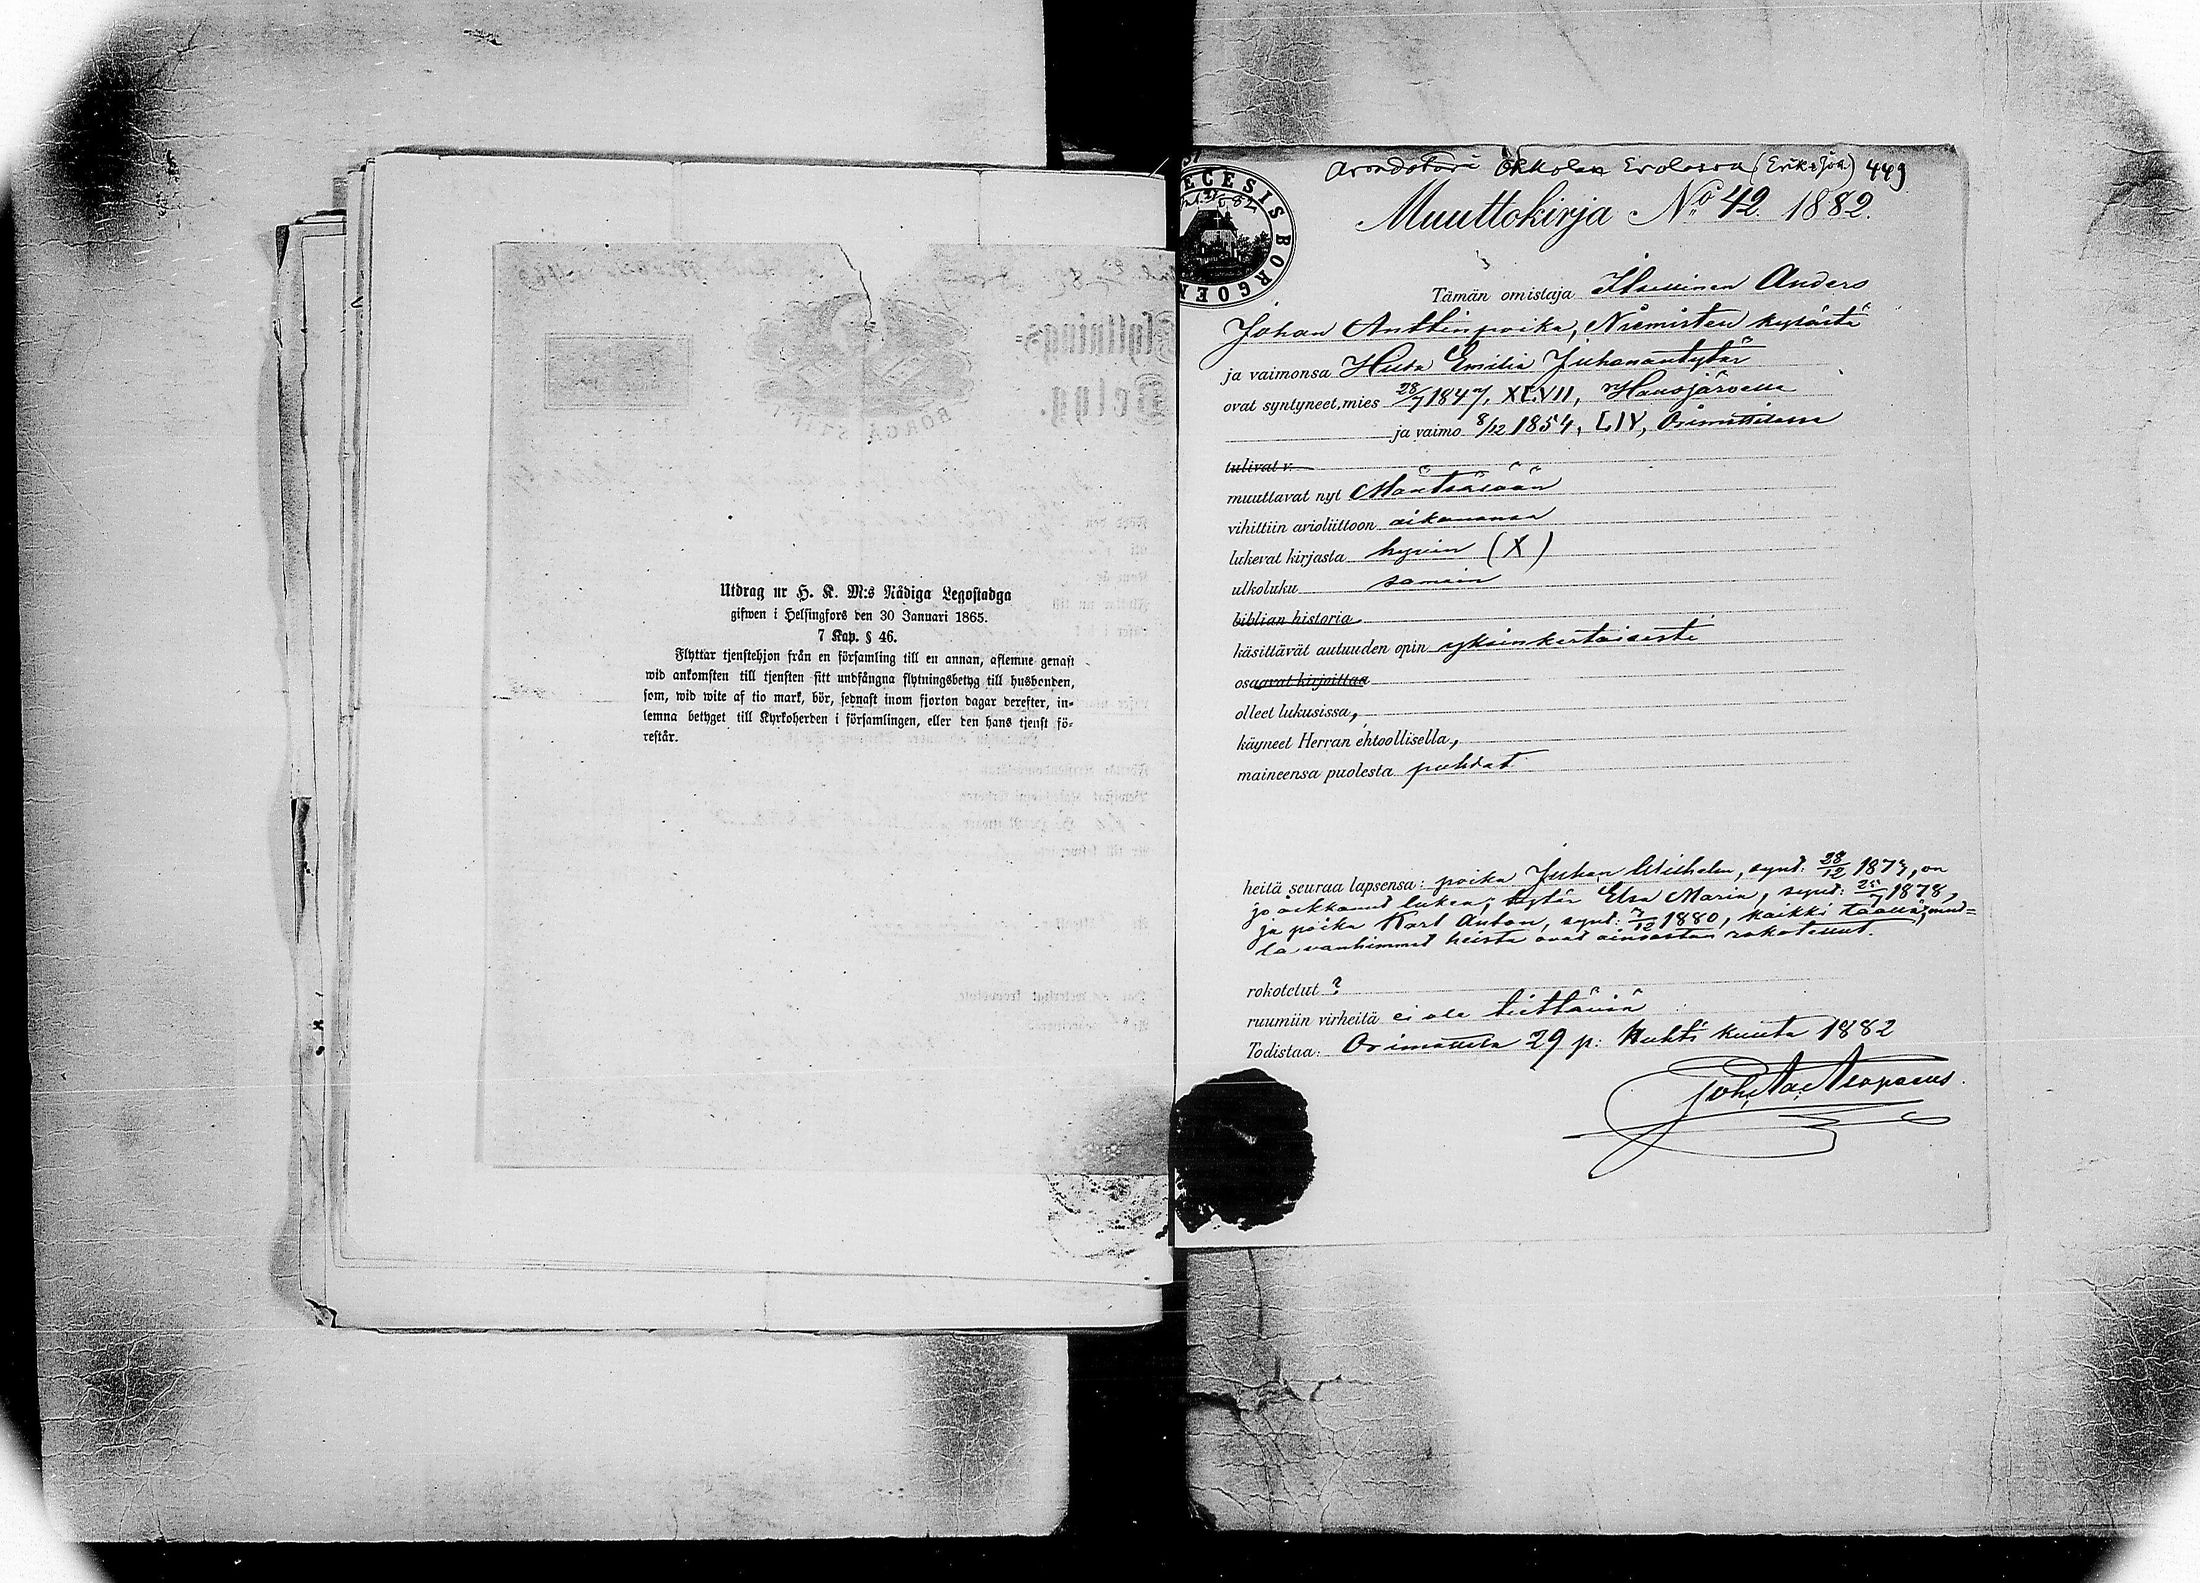 Utdrag ur H. K. M:s Nådiga Legostadga
gifwen i Helsingfors den 30 Januari 1865.
7 Kap. § 46.
Flyttar tjenstehjon från en församling till en annan, aflemne genast
wid ankomsten till tjensten sitt undfångna flytningsbetyg till husbonden,
som, wid wite af tio mark, bör, sednast inom fjorton dagar derefter, in-
lemna betyget till Kyrkoherden i församlingen, eller den hans tjenst fö-
restår.
Arendatori Ohkolan Erolassa (Erik Joh.) 449
Muuttokirja No 42. 1882.
Tämän omistaja Anders
Johan Antinpoika, Niemisten kylästä
ja vaimonsa Emilia Juhanantytär
ovat syntyneet, mies 28/7 1847, XLVII, Hausjärvellä
ja vaimo 8/12 1854, LIV, Orimattilassa
tulivat v.
muuttavat nyt Mäntsälään
vihittiin avioliittoon aikanansa
lukevat kirjasta hyvin (X)
ulkoluku samoin
biblian historia
käsittävät autuuden opin yksinkertaisesti
osaavat kirjoittaa
olleet lukusissa,
käyneet Herran ehtoollisella,
maineensa puolesta puhtat
heitä seuraa lapsensa: poika Juhan Wilhelm, synt: 28/12 1873, on
jo alkanut lukea; tytär Elsa Maria, synt: 25/7 1878,
ja poika Karl Anton, synt: 7/12 1880, kaikki täällä, mut=
ta vanhimmat heistä ovat ainoastan rokotetut.
rokotetut ?
ruumiin virheitä ei ole tiettävä
Todistaa: Orimattila 29 p: Huhti kuuta 1882
DIOECESIS BORGOENSIS
BORGÅ STIFT